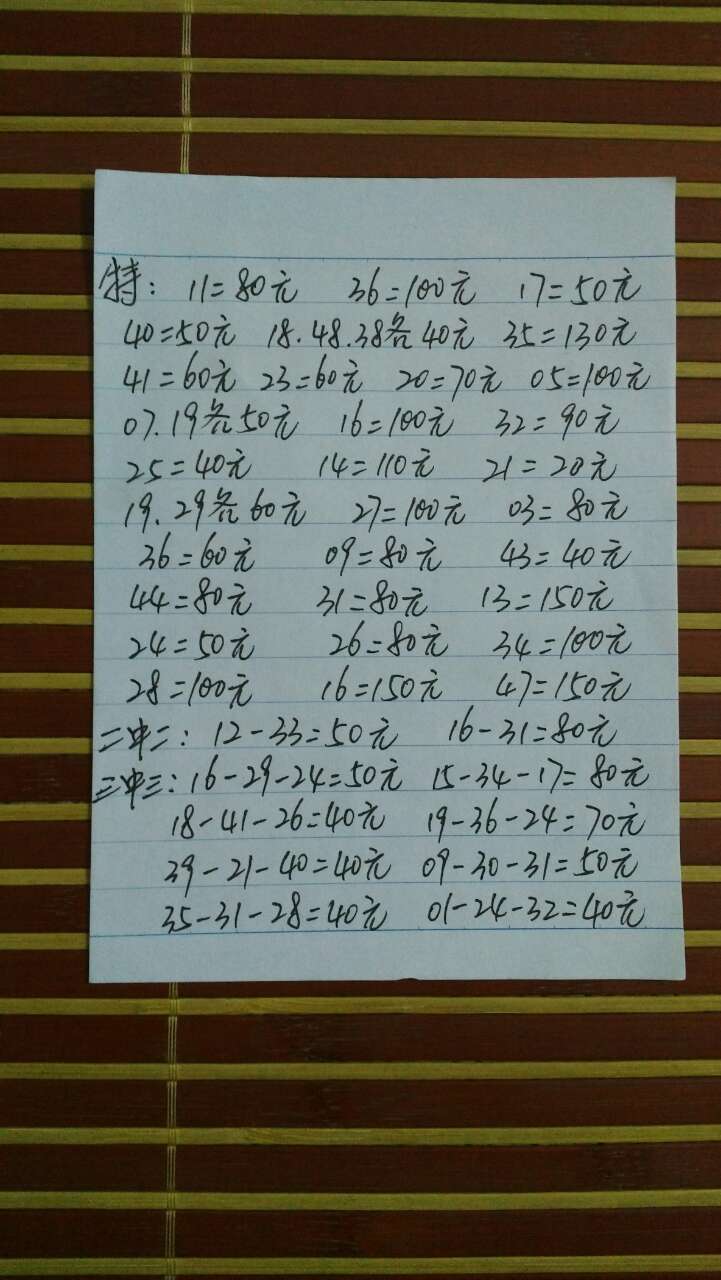 特: 11=80元 36=100元 17=50元
40=50元 18.48.38各40元 35=130元
41=60元 23=60元 20=70元 05=100元
07.19各50元 16=100元 32=90元
25=40元 14=110元 21=20元
19.29各60元 27=100元 03=80元
36=60元 09=80元 43=40元
44=80元 31=80元 13=150元
24=50元 26=80元 34=100元
28=100元 16=150元 47=150元
二中二: 12-33=50元 16-31=80元
三中三: 16-29-24=50元 15-34-17=80元
18-41-26=40元 19-36-24=70元
39-21-40=40元 09-30-31=50元
35-31-28=40元 01-24-32=40元